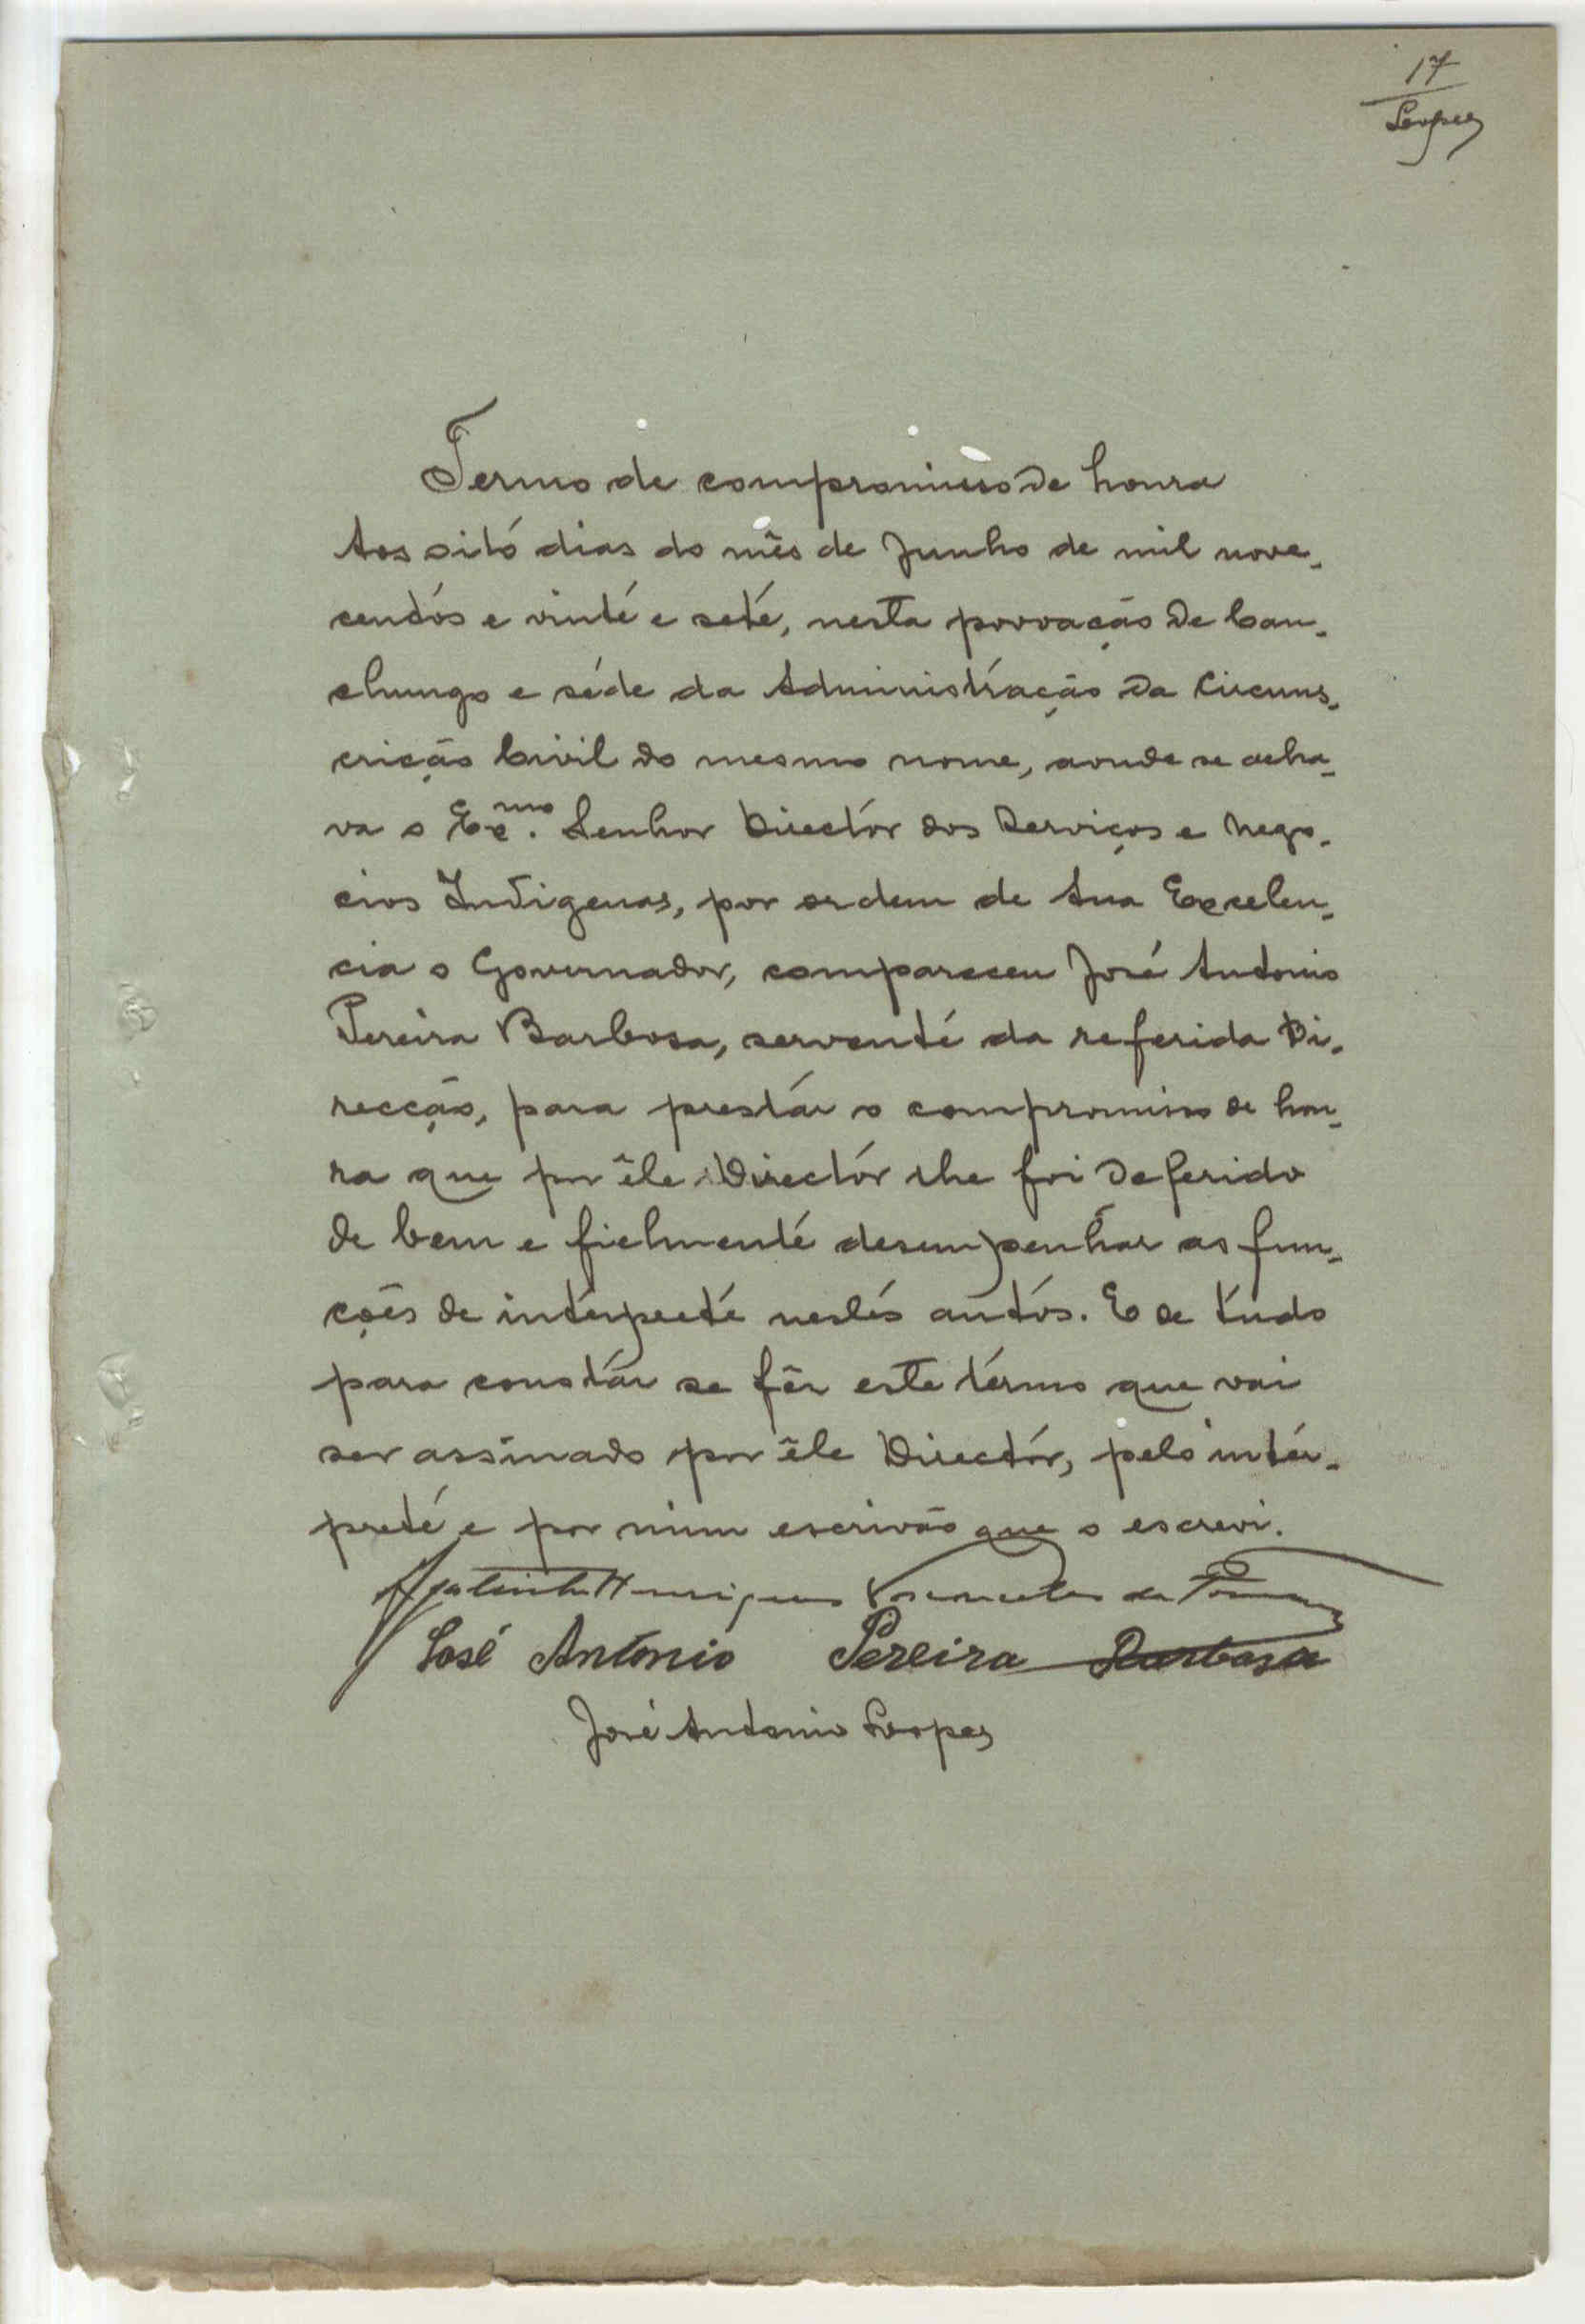 17
Lopes
Termo de compromisso de honra
Aos oito dias do mês de Junho de mil nove-
centos e vinte e sete, nesta povoação de Can-
chungo e séde da Administração da Circuns-
crição Civil do mesmo nome, aonde se acha-
va o Ex.mo Senhor Director dos Serviços e Nego-
cios Indigenas, por ordem de Sua Excelen-
cia o Governador, compareceu José Antonio
Pereira Barbosa, servente da referida Di-
recção, para prestar o compromisso de hon-
ra que por êle Director lhe foi deferido
de bem e fielmente desempenhar as fun-
ções de interprete nestes autos. E de tudo
para constar se fêz este têrmo que vai
ser assinado por êle Director, pelo intér-
prete e por mim escrivão que o escrevi.
Henriques
José António Pereira Barbosa
José Antonio Lopes